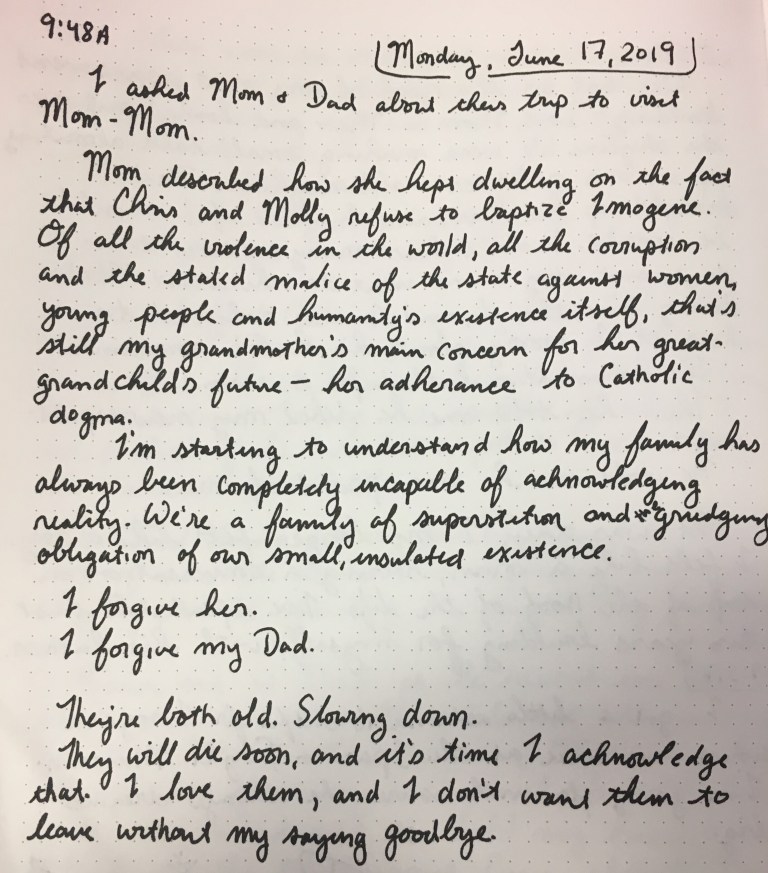 9:48A
Monday, June 17, 2019
I asked Mom & Dad about their trip to visit
Mom-Mom.
Mom described how she kept dwelling on the fact
that Chris and Molly refuse to baptize Imogene.
Of all the violence in the world, all the corruption
and the stated malice of the state against women,
young people and humanity's existence itself, that's
still my grandmother's main concern for her great-
grandchild's future — her adherance to Catholic
dogma.
I'm starting to understand how my family has
always been completely incapable of acknowledging
reality. We're a family of superstition and grudging
obligation of our small, insulated existence.
I forgive her.
I forgive my Dad.
They're both old. Slowing down.
They will die soon, and it's time I acknowledge
that. I love them, and I don't want them to
leave without my saying goodbye.